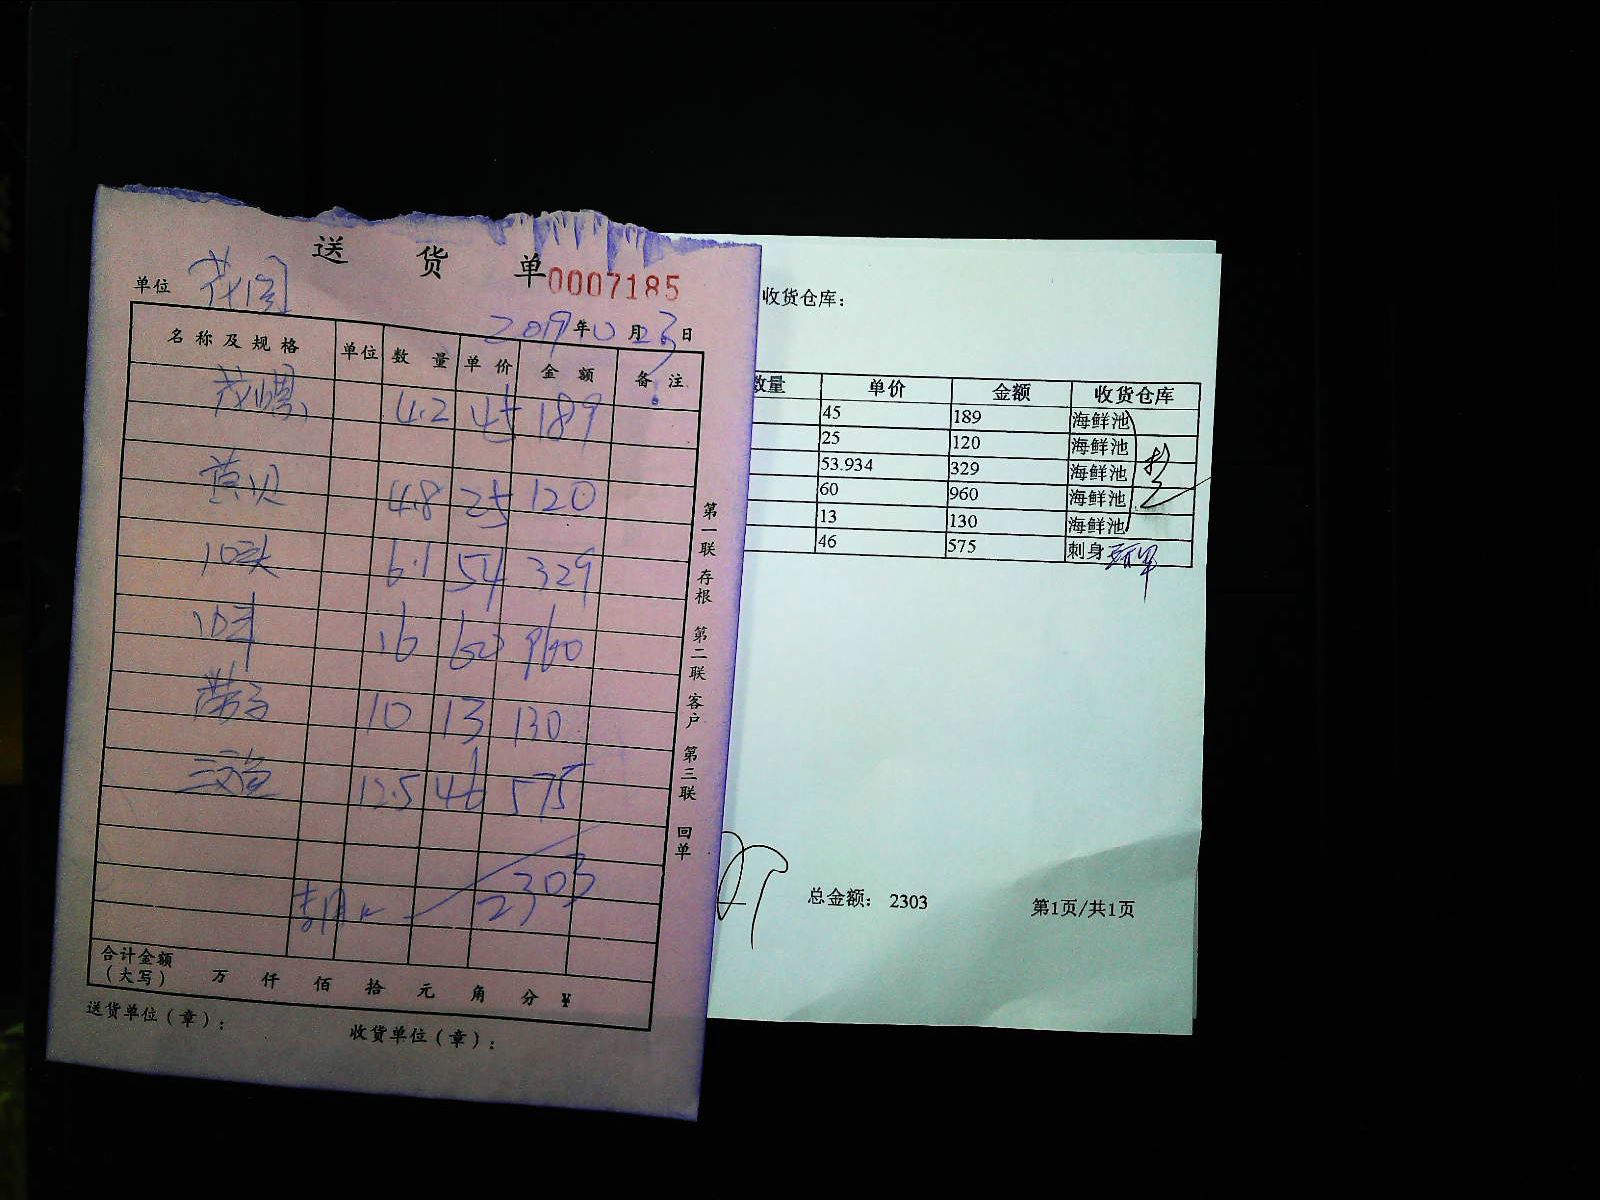 送 货 单 0007185
单位 花园
2019年 月23日
名称及规格 单位 数量 单价 金额 备注
4.2 45 189
黄贝 4.8 25 120
10头 6.1 54 329
16 60 960
带子 10 13 130
三文鱼 12.5 46 575
2303
合计金额
(大写) 万 仟 佰 拾 元 角 分 ¥
送货单位(章): 收货单位(章):
第一联 存根 第二联 客户 第三联 回单
收货仓库:
数量 单价 金额 收货仓库
45 189 海鲜池
25 120 海鲜池
53.934 329 海鲜池
60 960 海鲜池
13 130 海鲜池
46 575 刺身
总金额: 2303 第1页/共1页